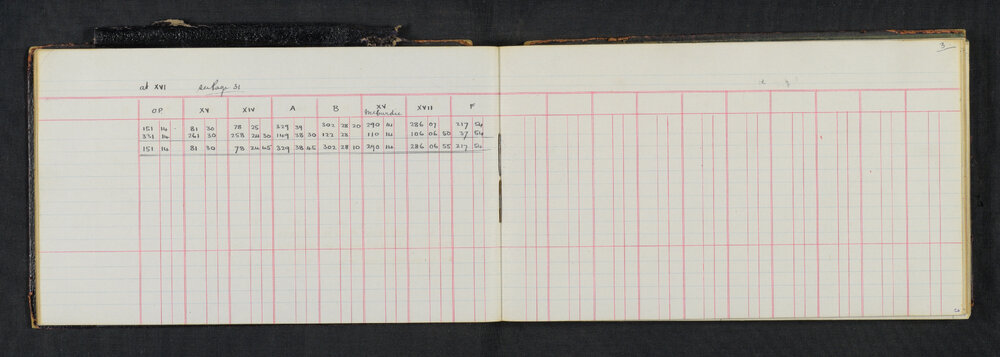 3
at XVI see Page 31
OP XV XIV A B XV McBurdie XVII F
151 14 81 30 78 25 329 39 302 28 20 290 14 286 07 217 54
331 14 261 30 258 24 30 149 38 30 122 28 110 14 106 06 50 37 54
151 14 81 30 78 24 45 329 38 45 302 28 10 290 14 286 06 55 217 54